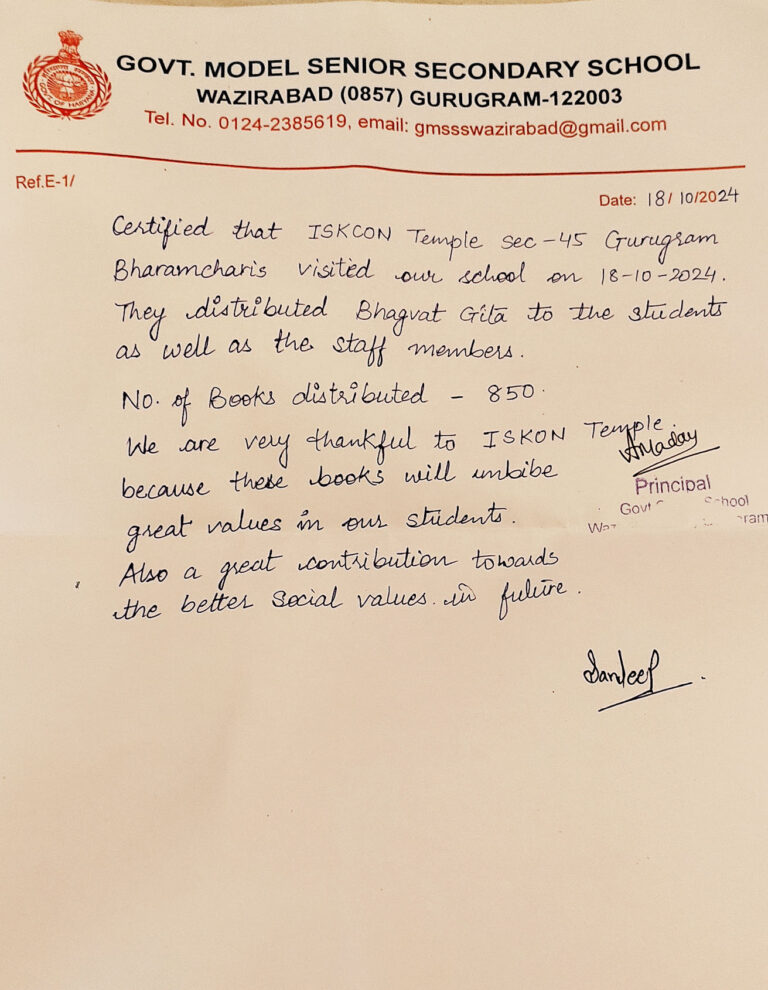 GOVT. MODEL SENIOR SECONDARY SCHOOL
WAZIRABAD (0857) GURUGRAM-122003
Tel. No. 0124-2385619, email: gmssswazirabad@gmail.com
GOVT OF HARYANA
Ref.E-1/
Date: 18/10/2024
Certified that ISKCON Temple Sec-45 Gurugram
Bharamcharis visited our school on 18-10-2024.
They distributed Bhagvat Gita to the students
as well as the staff members.
No. of Books distributed - 850.
We are very thankful to ISKON Temple.
because these books will imbibe
great values in our students.
Also a great contribution towards
the better Social values. in future.
Principal
Govt School
Sandeep